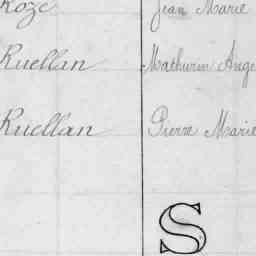 Roze Jean Marie
Ruellan Mathurin Ange
Ruellan Pierre Marie
S